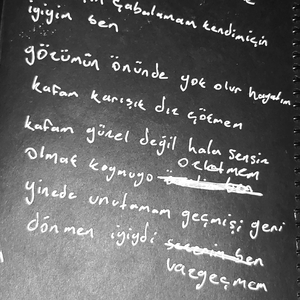 çabalamam kendimiçin
iyiyim ben
gözümün önünde yok olur hayatım
kafam karışık diz çökmem
kafam güzel değil hala sensin
olmak koymuyo
yinede unutamam geçmişi geri
dönmen iyiydi
vazgeçmem